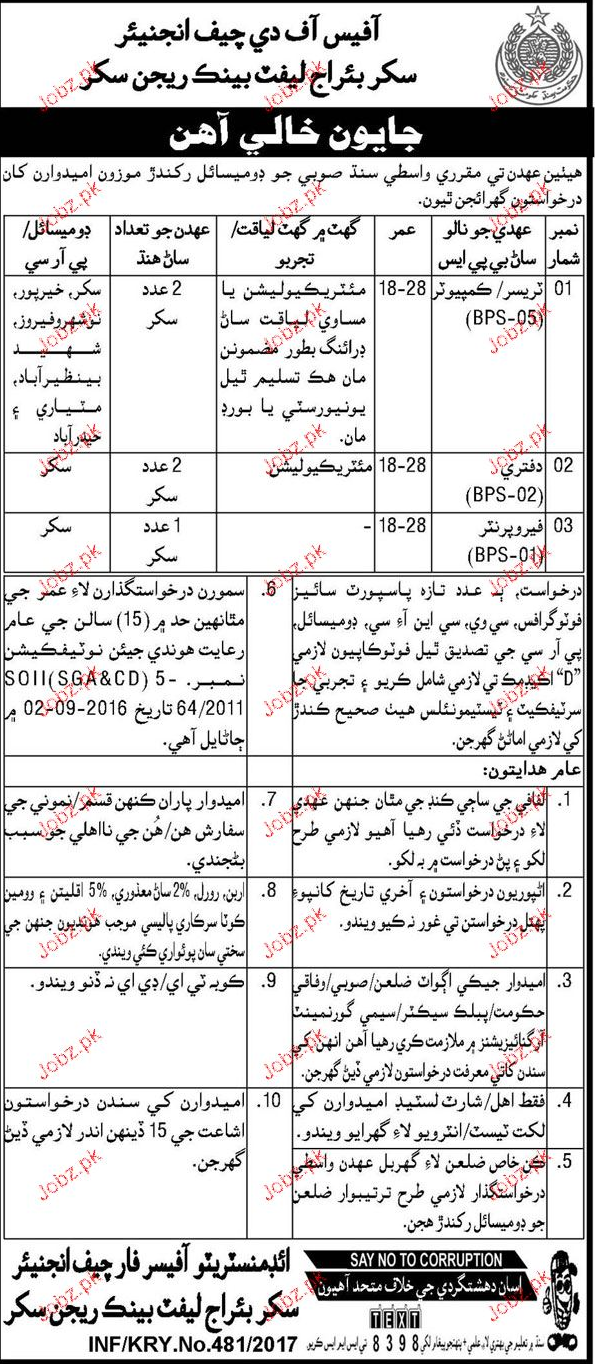 آفيس آف دي چيف انجنيئر
سکر بئراج ليفٽ بينڪ ريجن سکر
جايون خالي آهن
هيٺين عهدن تي مقرري واسطي سنڌ صوبي جو ڊوميسائل رکندڙ موزون اميدوارن کان
درخواستون گهرائجن ٿيون.
نمبر شمار
عهدي جو نالو سان بي پي ايس
عمر
گهٽ ۾ گهٽ لياقت/ تجربو
عهدن جو تعداد سان هنڌ
ڊوميسائل/ پي آر سي
01
ٽريسر/ ڪمپيوٽر
(BPS-05)
18-28
مئٽريڪيوليشن يا
مساوي لياقت سان
ڊرائنگ بطور مضمونن
مان هڪ تسليم ٿيل
يونيورسٽي يا بورڊ
مان.
2 عدد
سکر
سکر، خيرپور،
نوشهروفيروز،
شهيد
بينظيرآباد،
مٽياري ۽
حيدرآباد
02
دفتري
(BPS-02)
18-28
مئٽريڪيوليشن
2 عدد
سکر
سکر
03
فيروپرنٽر
(BPS-01)
18-28
-
1 عدد
سکر
سکر
درخواست، ٻه عدد تازه پاسپورٽ سائيز
فوٽوگرافس، سي وي، سي اين آءِ سي، ڊوميسائل،
پي آر سي جي تصديق ٿيل فوٽوڪاپيون لازمي
“D” اڪيڊمڪ تي لازمي شامل ڪريو ۽ تجربي جا
سرٽيفڪيٽ ۽ ٽيسٽيمونئلس هيٺ صحيح ڪندڙ
کي لازمي اماڻڻ گهرجن.
عام هدايتون:
1. لفافي جي ساڄي ڪنڊ جي مٿان جنهن عهدي
لاءِ درخواست ڏئي رهيا آهيو لازمي طرح
لکو ۽ پڻ درخواست ۾ به لکو.
2. اڻپوريون درخواستون ۽ آخري تاريخ کانپوءِ
پهتل درخواستن تي غور نه ڪيو ويندو.
3. اميدوار جيڪي اڳواٽ ضلعن/صوبي/وفاقي
حڪومت/پبلڪ سيڪٽر/سيمي گورنمينٽ
آرگنائيزيشنز ۾ ملازمت ڪري رهيا آهن انهن کي
سندن کاتي معرفت درخواستون لازمي ڏيڻ گهرجن.
4. فقط اهل/شارٽ لسٽيڊ اميدوارن کي
لکت ٽيسٽ/انٽرويو لاءِ گهرايو ويندو.
5. ڪن خاص ضلعن لاءِ گهربل عهدن واسطي
درخواستگذار لازمي طرح ترتيبوار ضلعن
جو ڊوميسائل رکندڙ هجن.
6. سمورن درخواستگذارن لاءِ عمر جي
مٿانهين حد ۾ (15) سالن جي عام
رعايت هوندي جيئن نوٽيفڪيشن
نمبر. SOII(SGA&CD) 5-
64/2011 تاريخ 02-09-2016 ۾
ڄاڻايل آهي.
7. اميدوار پاران ڪنهن قسم/نموني جي
سفارش هن/هُن جي نااهلي جو سبب
بڻجندي.
8. اربن، رورل، 2% سان معذوري، 5% اقليتن ۽ وومين
ڪوٽا سرڪاري پاليسي موجب هونديون جنهن جي
سختي سان پوئواري ڪئي ويندي.
9. ڪوبه ٽي اي/ڊي اي نه ڏنو ويندو.
10. اميدوارن کي سندن درخواستون
اشاعت جي 15 ڏينهن اندر لازمي ڏيڻ
گهرجن.
ائڊمنسٽريٽو آفيسر فار چيف انجنيئر
سکر بئراج ليفٽ بينڪ ريجن سکر
INF/KRY.No.481/2017
SAY NO TO CORRUPTION
اسان دهشتگردي جي خلاف متحد آهيون
TEXT
8398
Jobz.pk